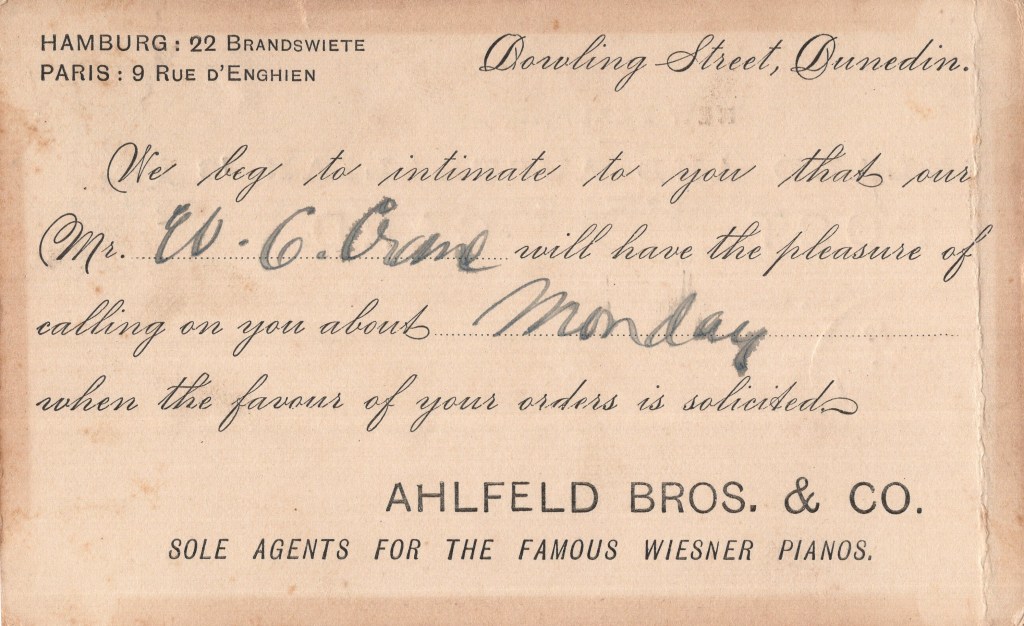 HAMBURG: 22 BRANDSWIETE
PARIS: 9 RUE D'ENGHIEN
Dowling Street, Dunedin.
We beg to intimate to you that our
Mr. W. C. Crane will have the pleasure of
calling on you about Monday
when the favour of your orders is solicited.
AHLFELD BROS. & CO.
SOLE AGENTS FOR THE FAMOUS WIESNER PIANOS.